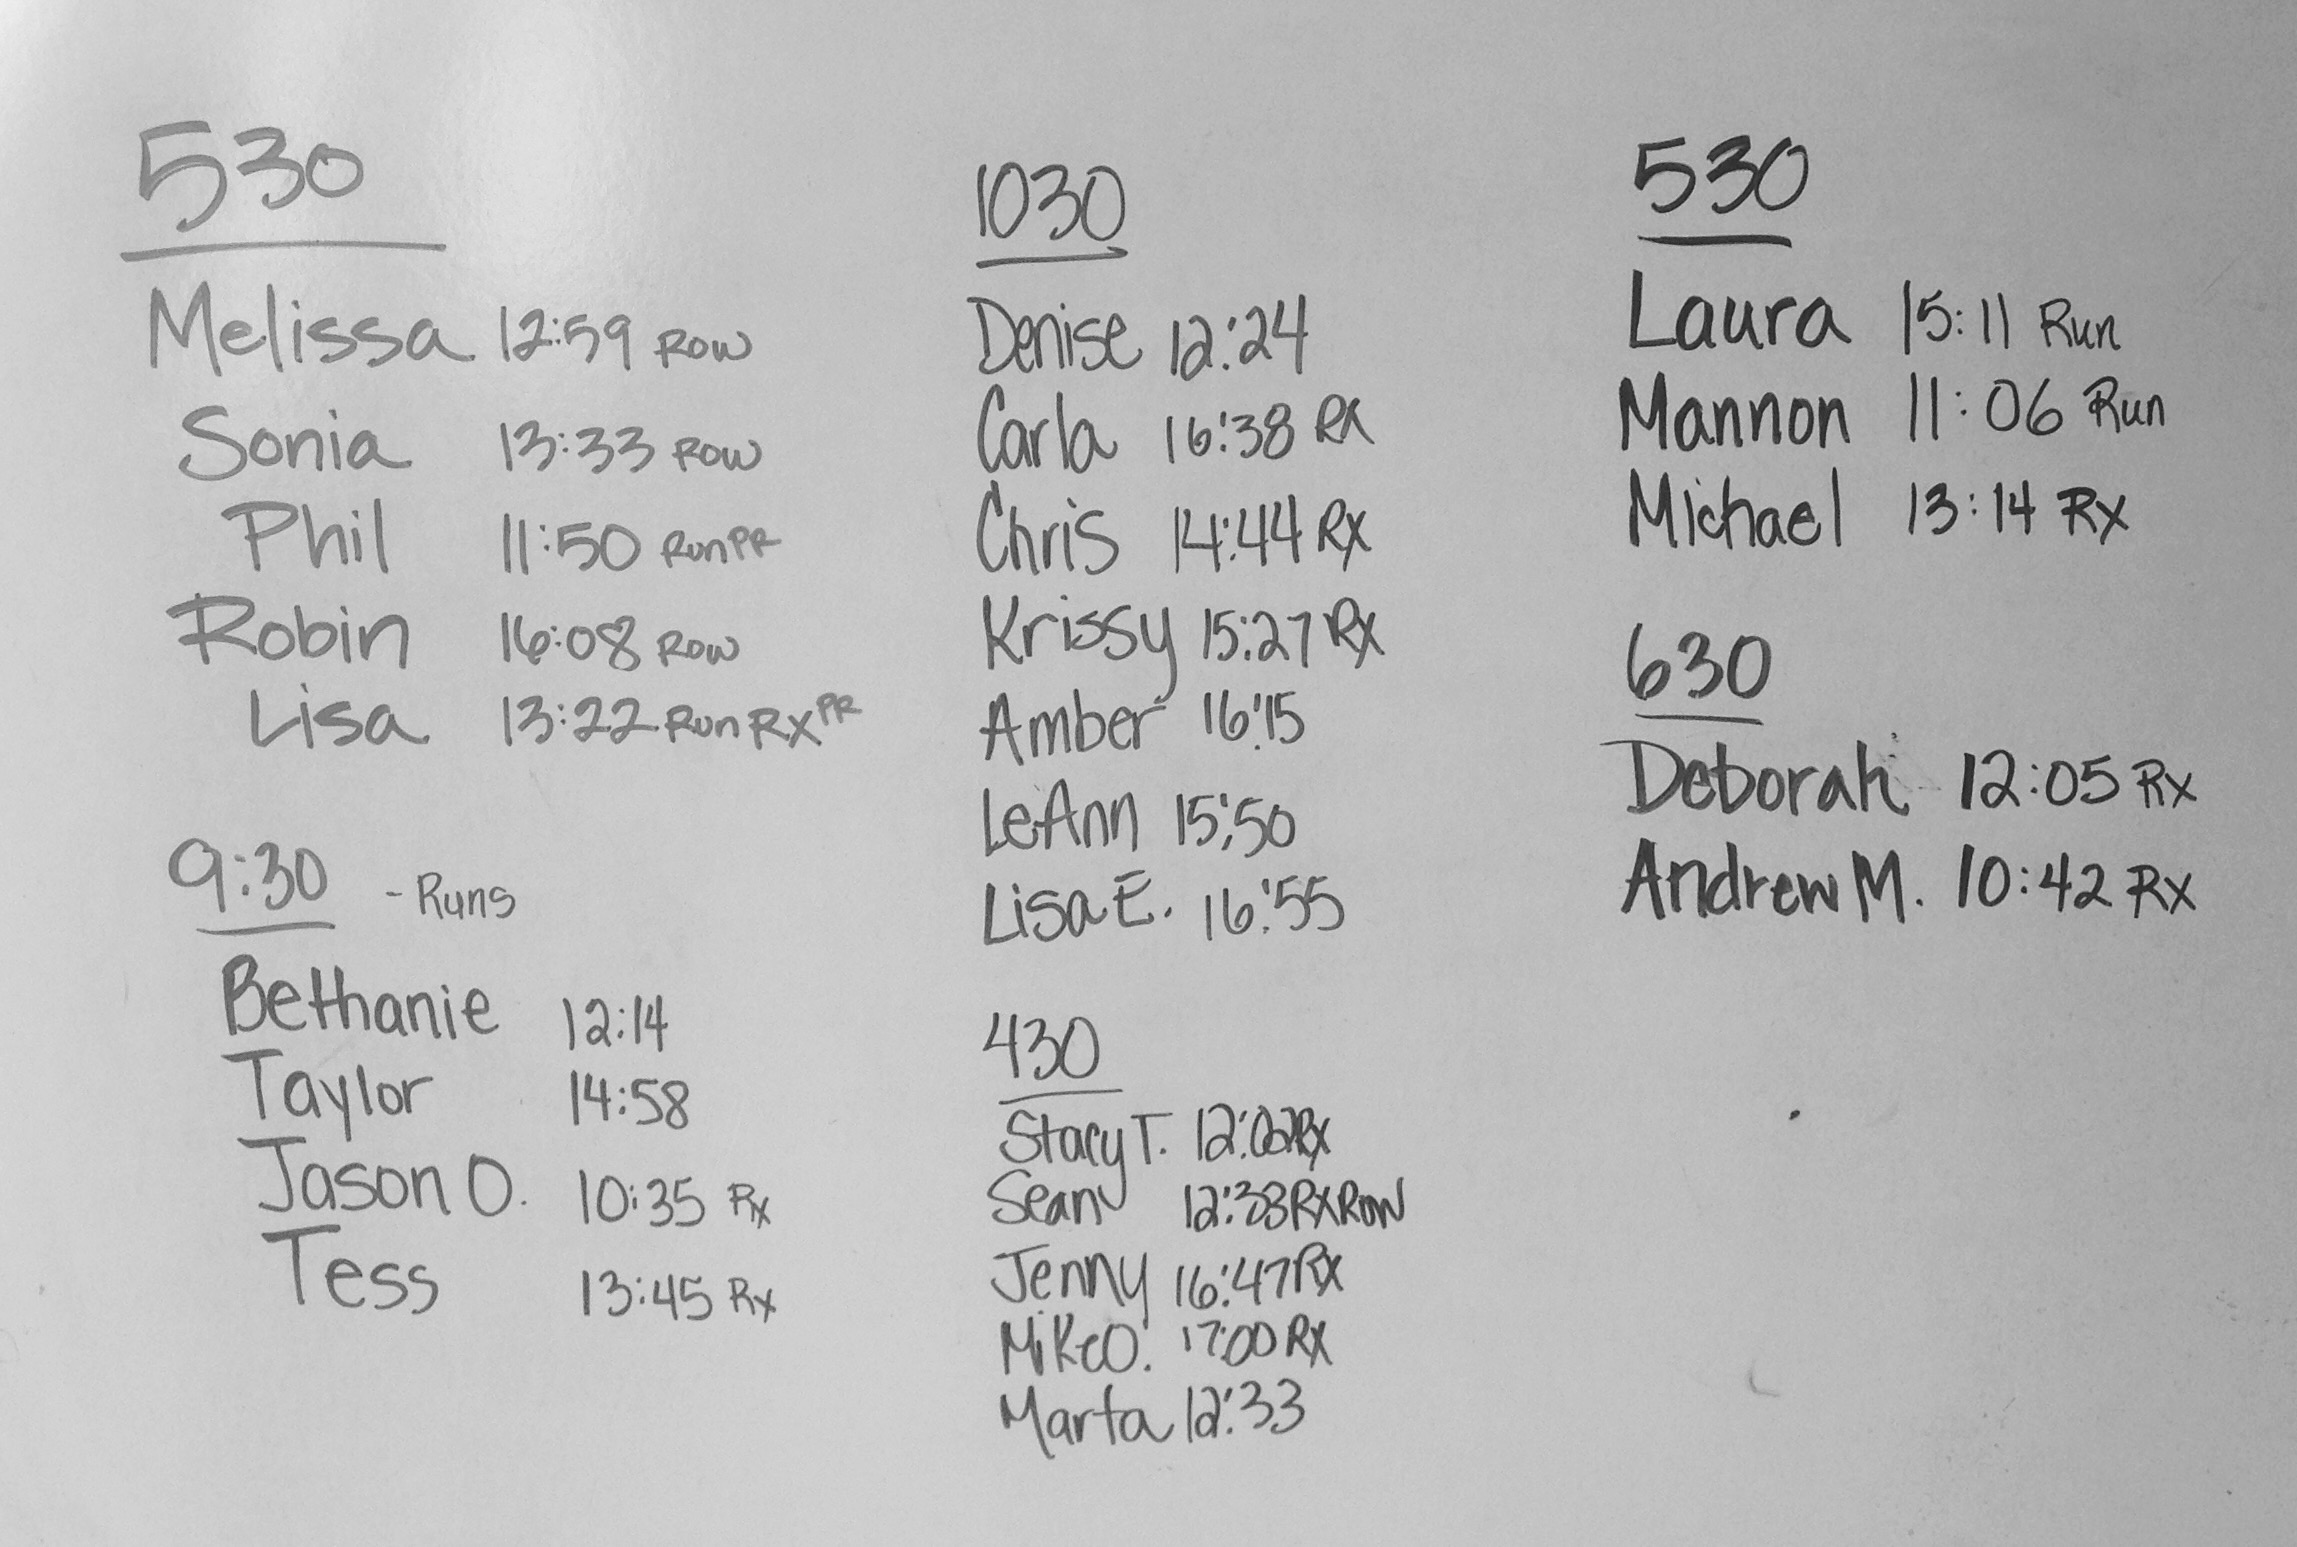 530
Melissa 12:59 Row
Sonia 13:33 Row
Phil 11:50 Run PR
Robin 16:08 Row
Lisa 13:22 Run Rx PR
9:30 - Runs
Bethanie 12:14
Taylor 14:58
Jason O. 10:35 Rx
Tess 13:45 Rx
1030
Denise 12:24
Carla 16:38 RX
Chris 14:44 RX
Krissy 15:27 RX
Amber 16:15
LeAnn 15:50
Lisa E. 16:55
430
Stacy T. 12:02 RX
Sean 12:33 RX Row
Jenny 16:47 RX
Mike O. 17:00 RX
Marta 12:33
530
Laura 15:11 Run
Mannon 11:06 Run
Michael 13:14 Rx
630
Deborah 12:05 Rx
Andrew M. 10:42 Rx